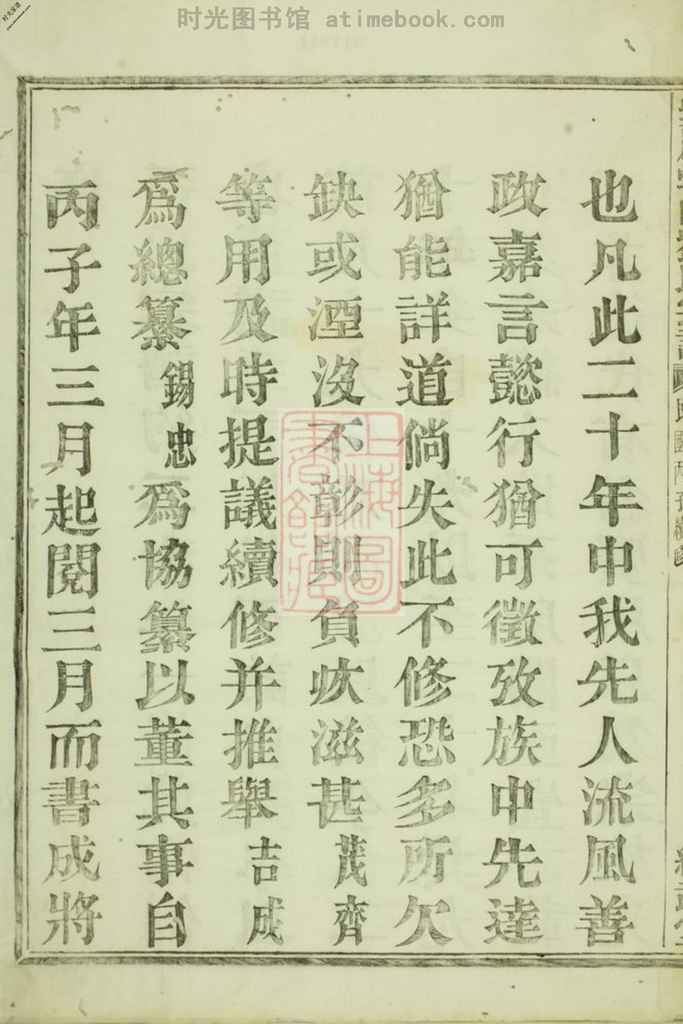 时光图书馆 atimebook.com
也凡此二十年中我先人流風善
政嘉言懿行猶可徵攷族中先達
猶能詳道倘失此不修恐多所欠
缺或湮沒不彰則負疚滋甚茂齊
等用及時提議續修并推舉吉成
爲總纂錫忠爲協纂以董其事自
丙子年三月起閱三月而書成將
上海圖書館藏